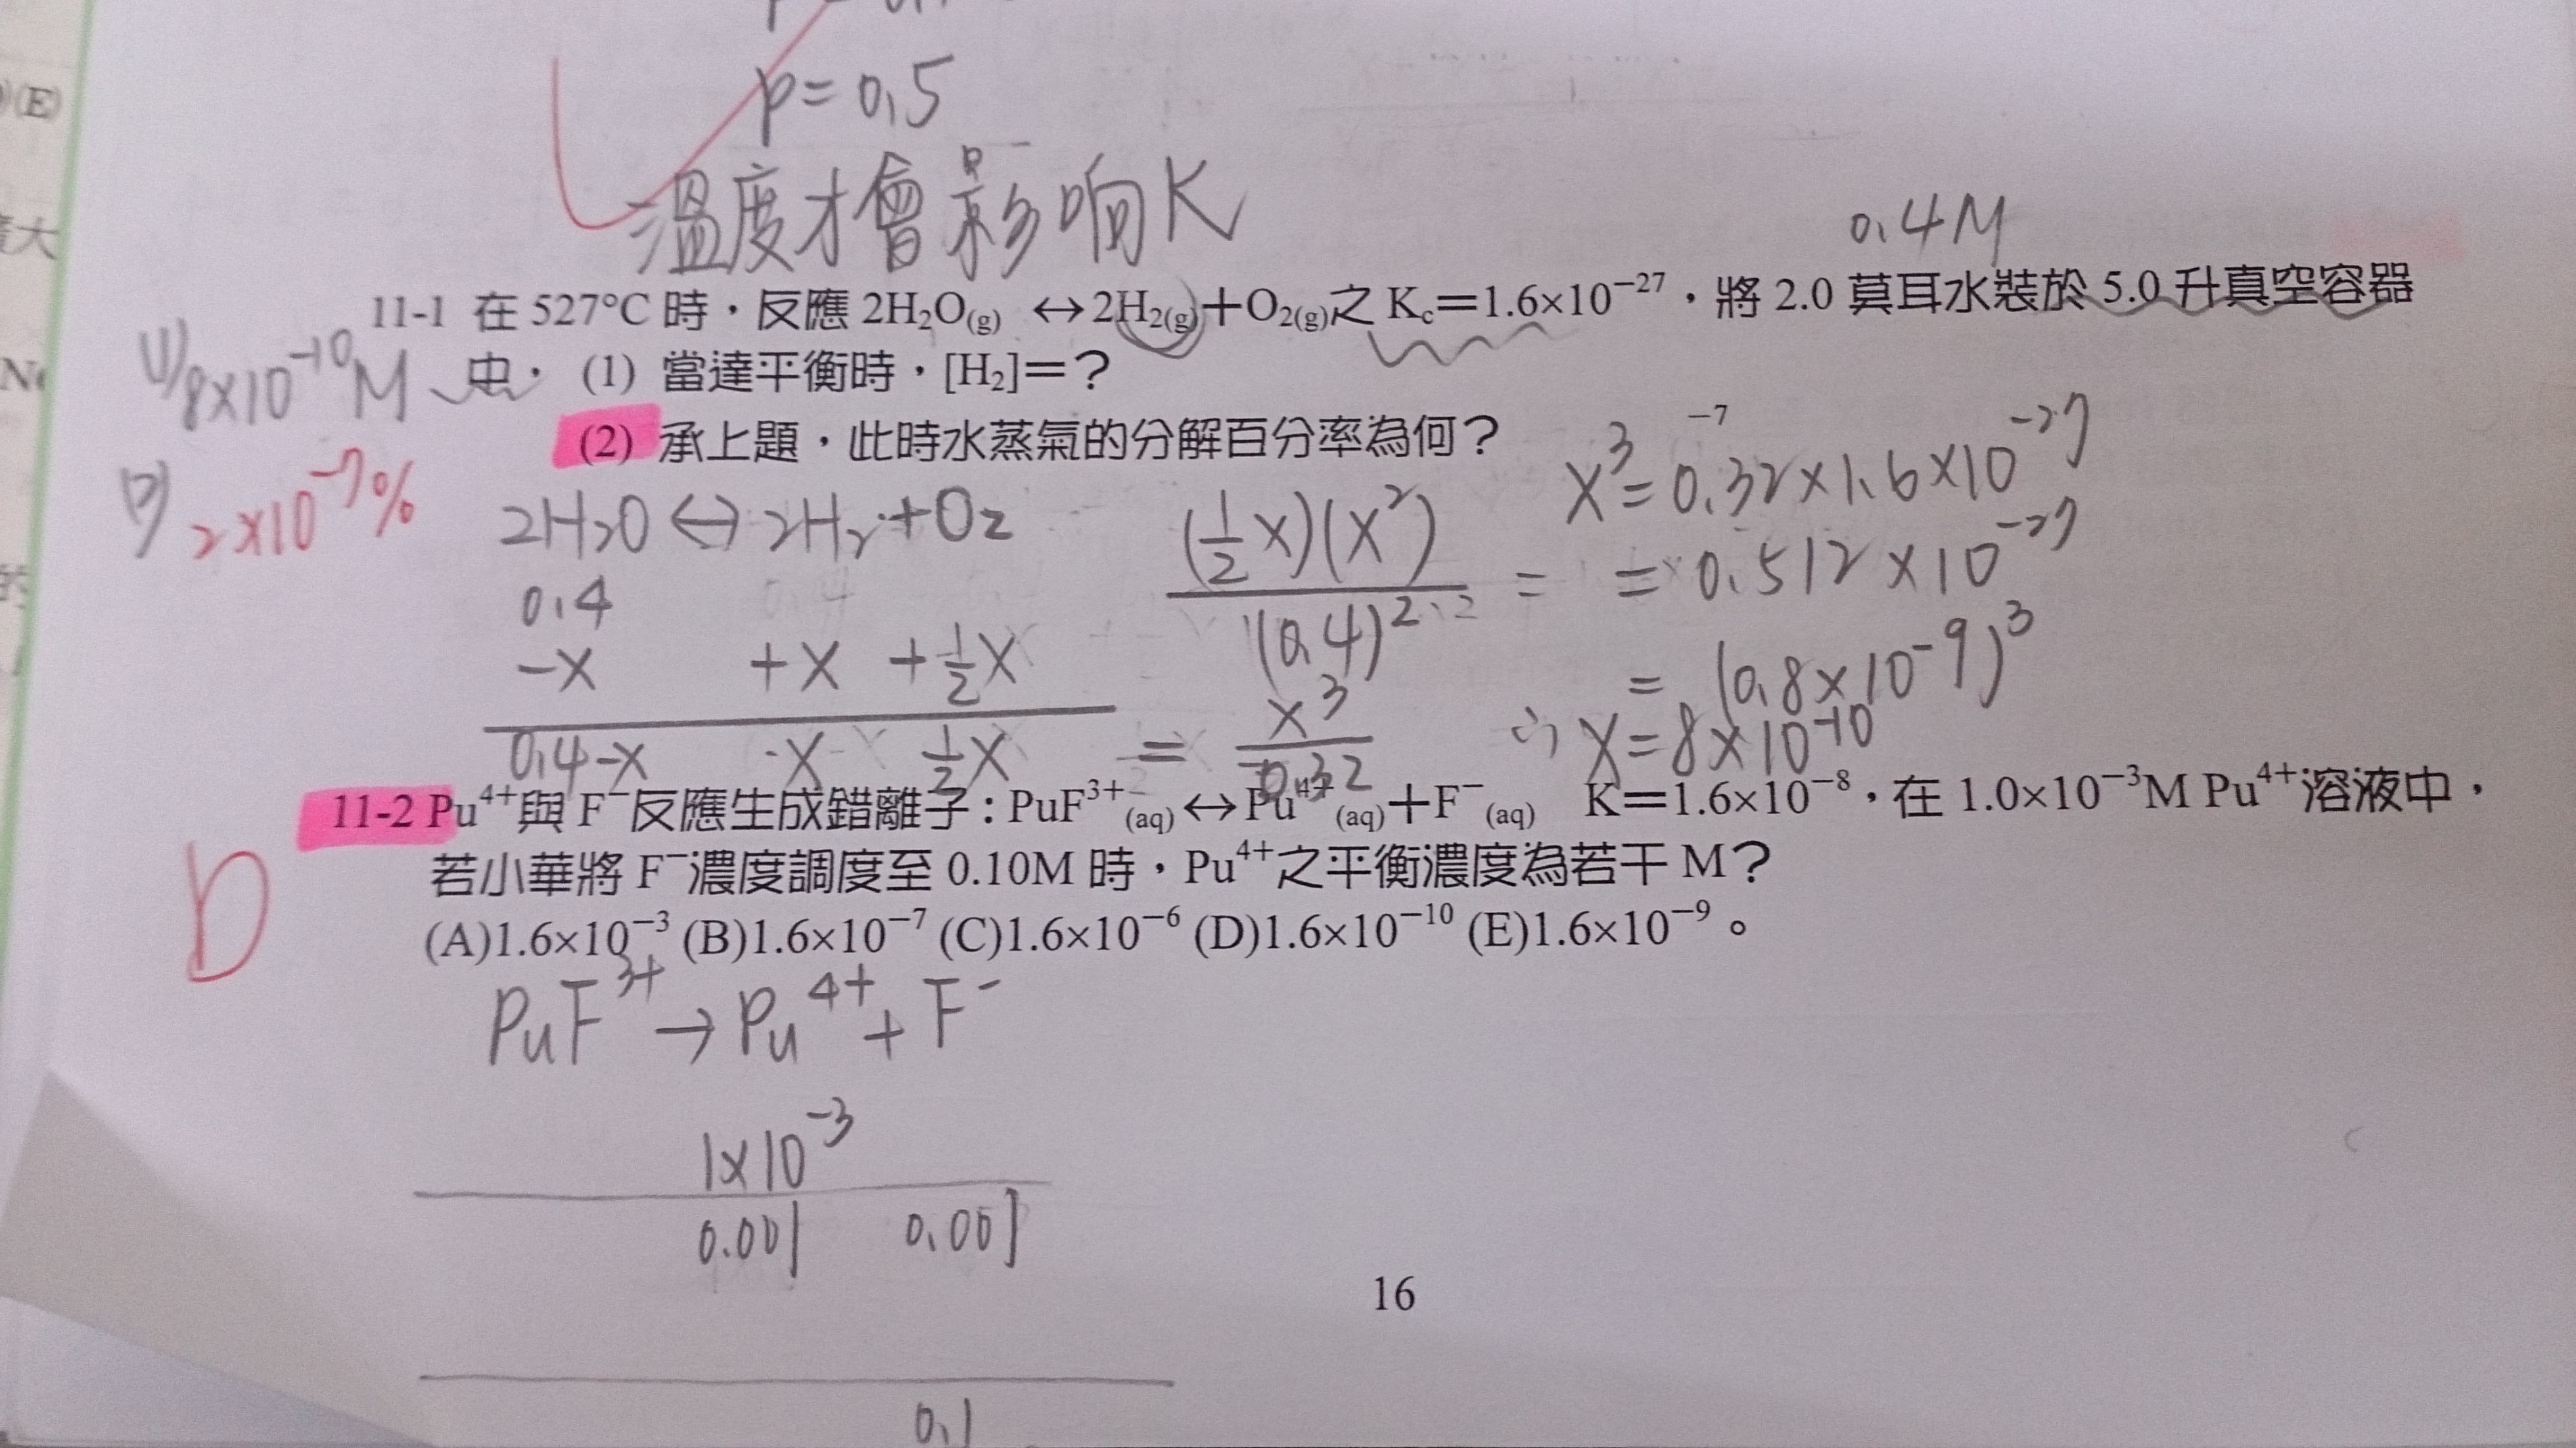 (E)
大
p=0.5
溫度才會影响K
0.4M
11-1 在 527°C 時，反應 2H₂O(g) ↔2H₂(g)+O₂(g)之 Kc=1.6×10⁻²⁷，將 2.0 莫耳水裝於 5.0 升真空容器
中， (1) 當達平衡時，[H₂]=？
(1) 8×10⁻¹⁰M
(2) 承上題，此時水蒸氣的分解百分率為何？
(2) 2×10⁻⁷%
2H₂O ↔ 2H₂+O₂
0.4
-x +x +½x
0.4-x x ½x
(½x)(x²)/(0.4)² =
= x³/0.32
-7
x³=0.32×1.6×10⁻²⁷
=0.512×10⁻²⁷
= (0.8×10⁻⁹)³
∴ x=8×10⁻¹⁰
11-2 Pu⁴⁺與 F⁻反應生成錯離子：PuF³⁺(aq)↔Pu⁴⁺(aq)+F⁻(aq) K=1.6×10⁻⁸，在 1.0×10⁻³M Pu⁴⁺溶液中，
若小華將 F⁻濃度調度至 0.10M 時，Pu⁴⁺之平衡濃度為若干 M？
(A)1.6×10⁻³ (B)1.6×10⁻⁷ (C)1.6×10⁻⁶ (D)1.6×10⁻¹⁰ (E)1.6×10⁻⁹。
D
PuF³⁺ → Pu⁴⁺ + F⁻
1×10⁻³
0.001 0.001
0.1
16